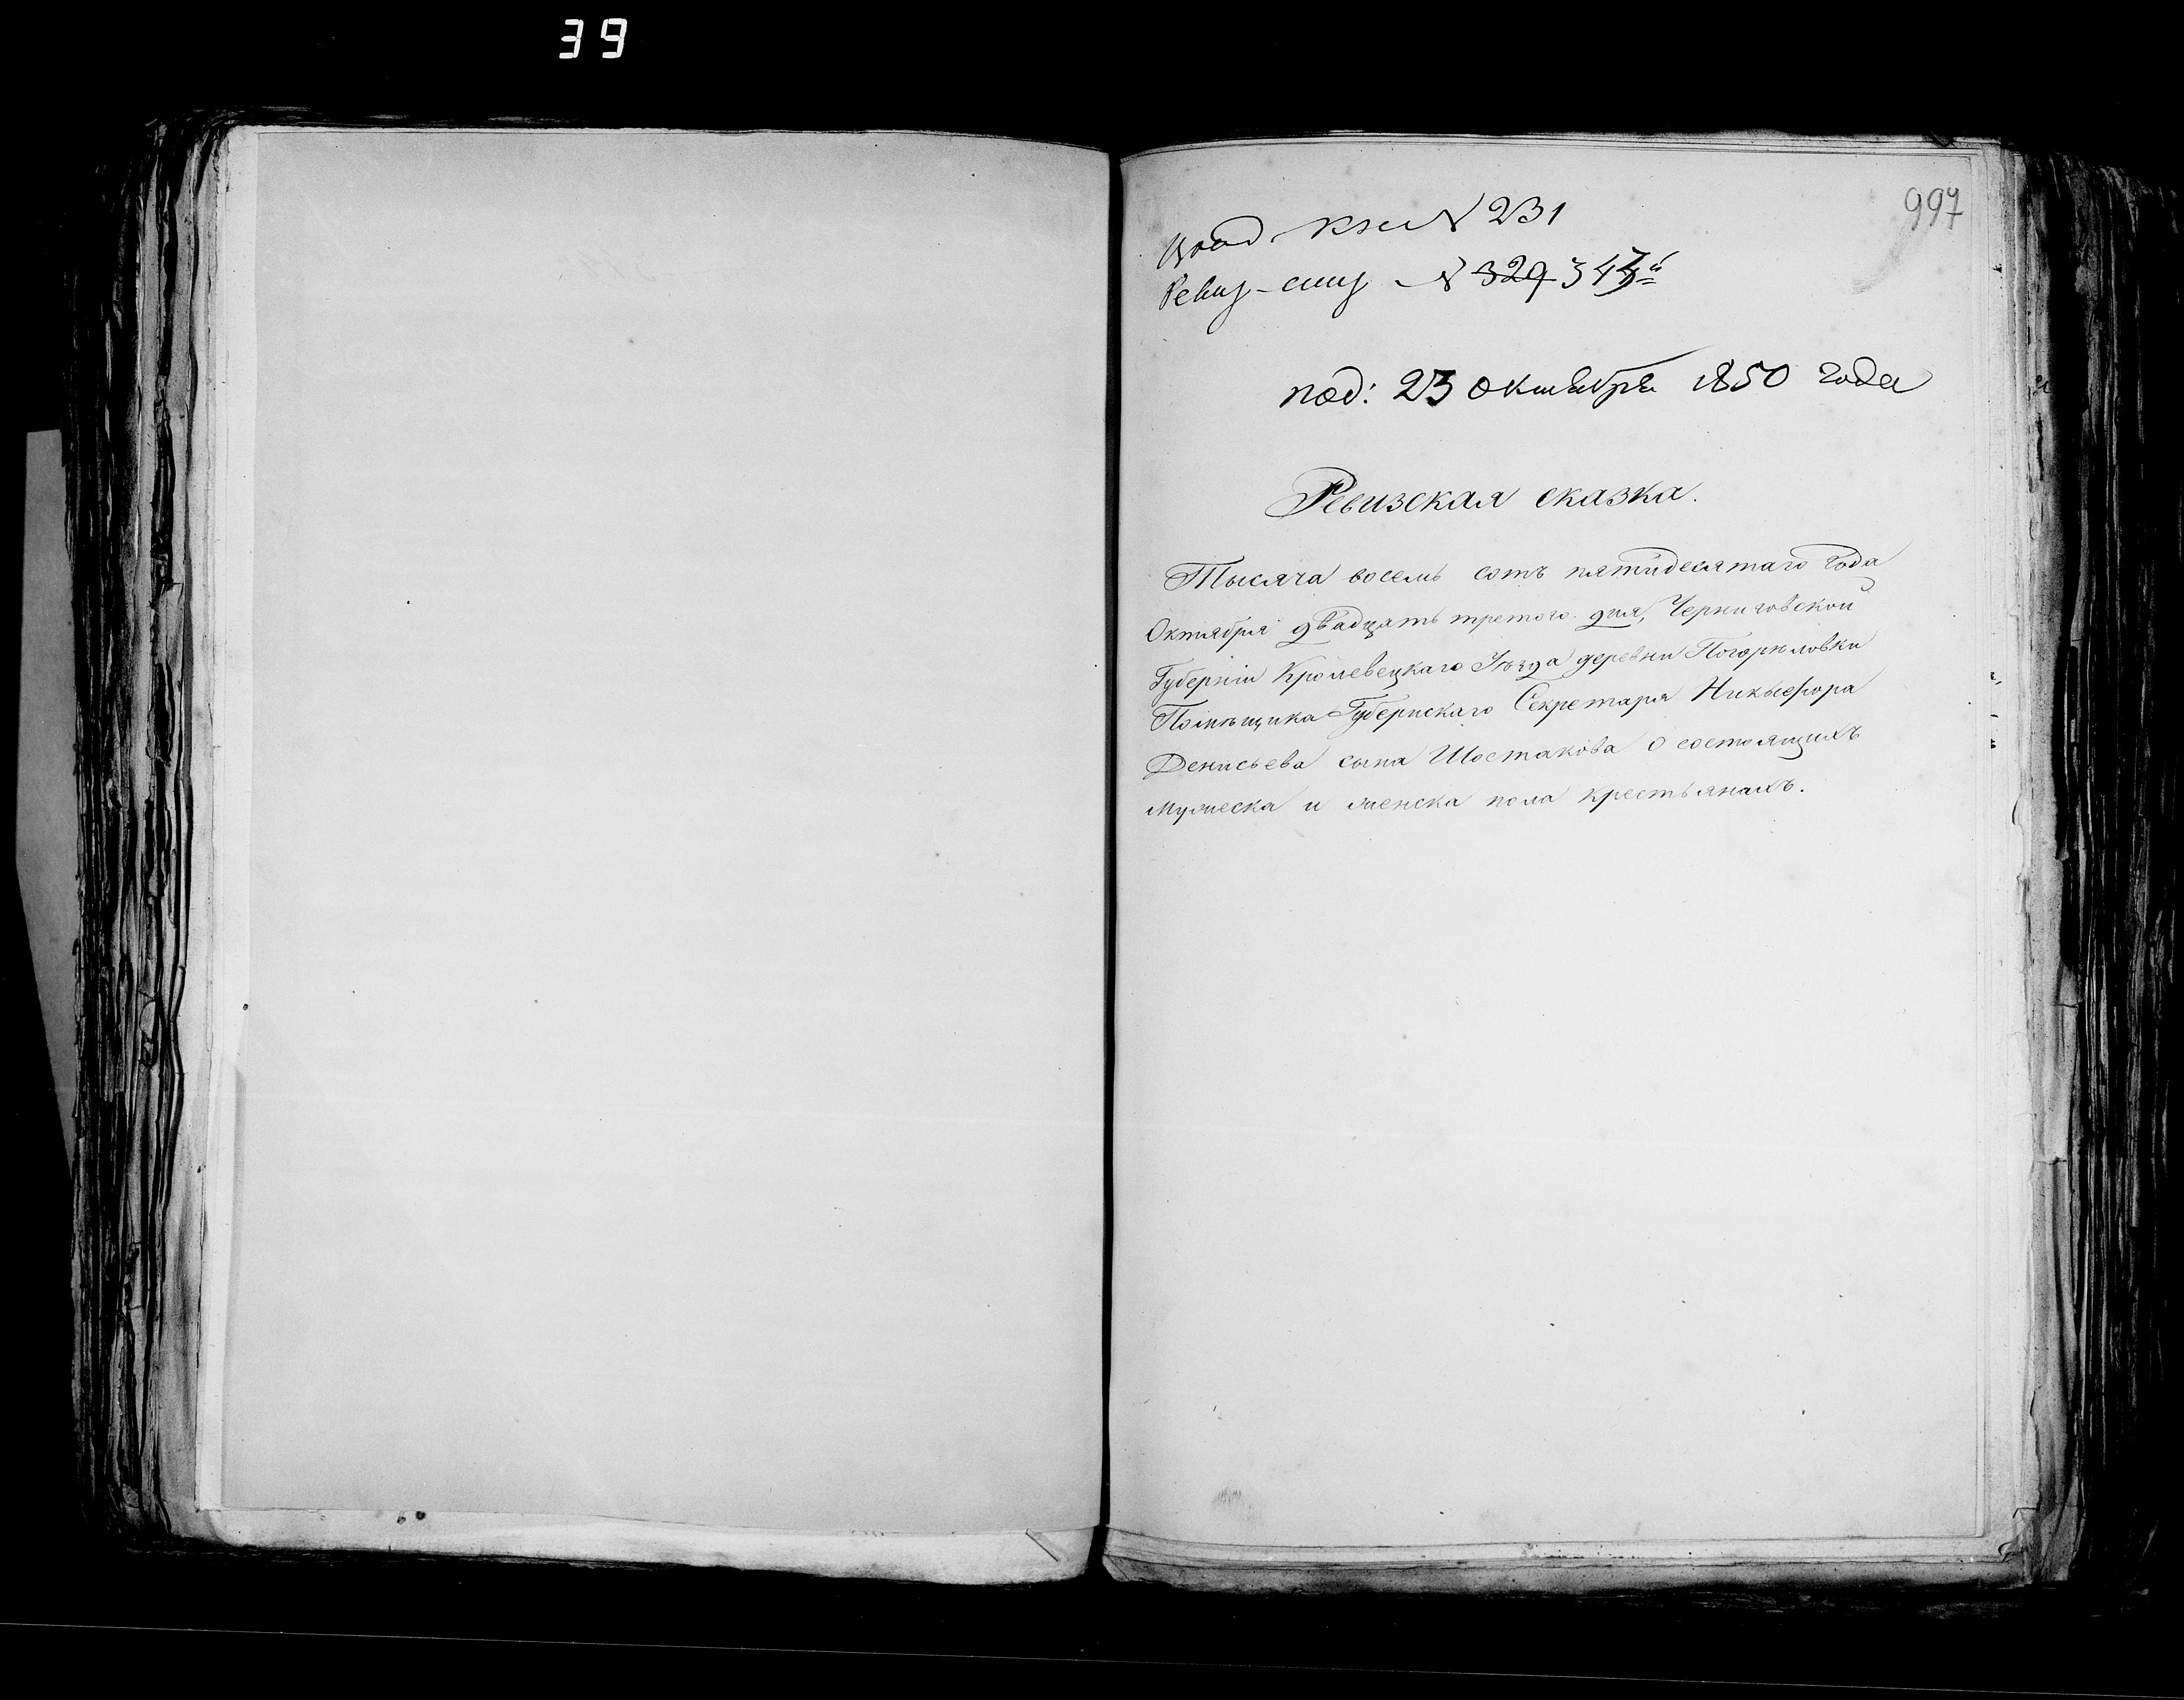 39
997
№ 231
Ревиз - № 329
под: 23 октября 1850 года
Ревизская сказка.
Тысяча восемь сотъ пятидесятаго года
Октября двадцать третого дня, Черниговской
Губерніи Кролевецкаго Уѣзда деревни Погорѣловки
Помѣщика Губернскаго Секретаря Никыфора
Денисьева сына Шостакова о состоящихъ
мужеска и женска пола крестьянахъ.